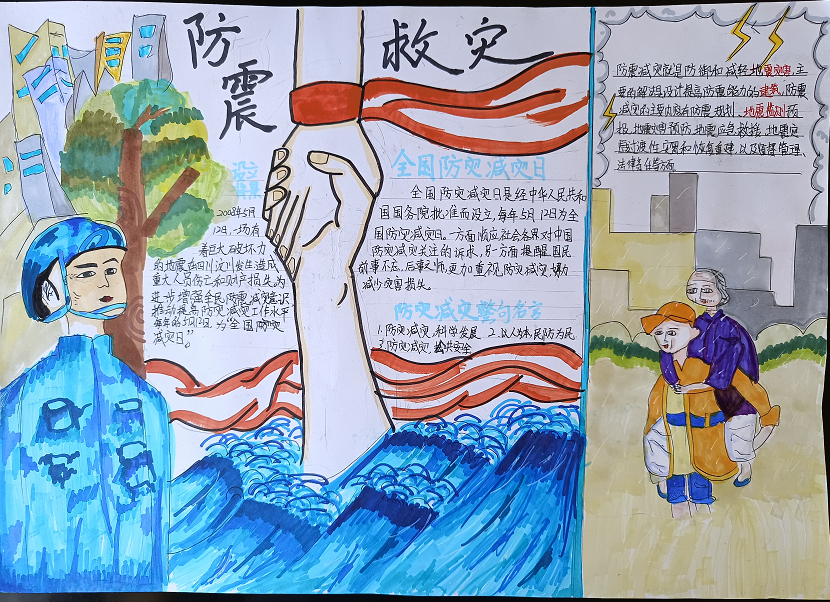 防震
救灾
设立
背景
2008年5月
12日,一场有
着巨大破坏力
的地震在四川汶川发生造成
重大人员伤亡和财产损失,为
进步增强全民防震减灾意识
推动提高防灾减灾工作水平
每年的5月12日为“全国防灾
减灾日。”
全国防灾减灾日
全国防灾减灾日是经中华人民共和
国国务院批准而设立,每年5月12日为全
国防灾减灾日。一方面顺应社会各界对中国
防灾减灾关注的诉求,另一方面提醒国民
前事不忘,后事之师,更加重视,防灾减灾,
减少灾害损失。
防灾减灾警句名言
1.防灾减灾,科学发展 2.以人为本民防为民
3.防灾减灾,公共安全
防震减灾就是防御和减轻地震灾害,主
要的解决设计提高防震能力的建筑,防震
减灾的主要内容有防震规划、地震监测预
报、地震灾害预防、地震应急救援、地震灾
后过渡性安置和恢复重建,以及监督管理、
法律责任等方面